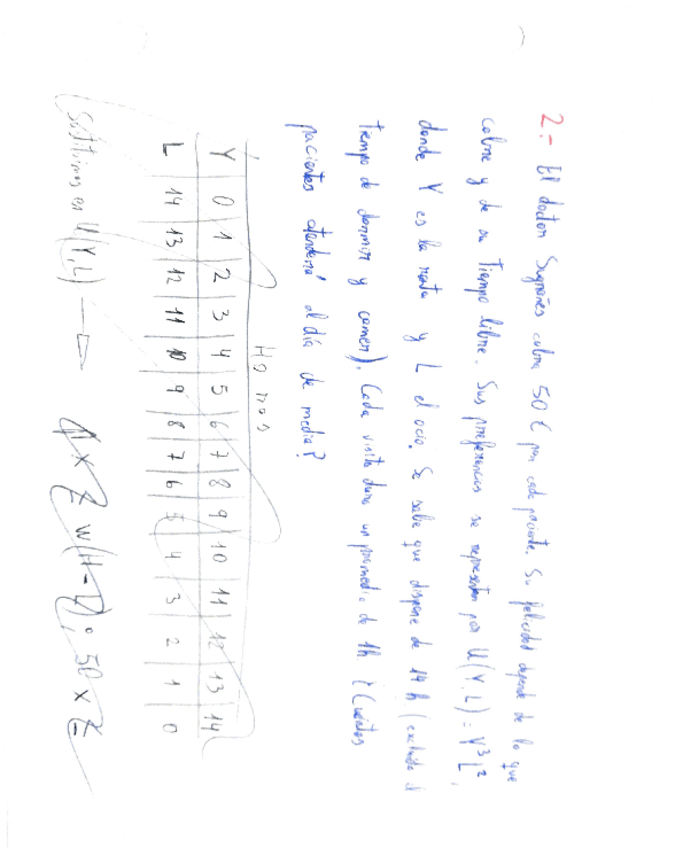 2.- El doctor Sugrañes cobra 50 € por cada paciente. Su felicidad depende de lo que
cobre y de su tiempo libre. Sus preferencias se representan por U(Y,L) = Y³L²,
donde Y es la renta y L el ocio. Se sabe que dispone de 14 h (excluido el
tiempo de dormir y comer). Cada visita dura un promedio de 1h ¿Cuántos
pacientes atenderá al día de media?
Horas
Y | 0 | 1 | 2 | 3 | 4 | 5 | 6 | 7 | 8 | 9 | 10 | 11 | 12 | 13 | 14
L | 14 | 13 | 12 | 11 | 10 | 9 | 8 | 7 | 6 | 5 | 4 | 3 | 2 | 1 | 0
Sustituimos en U(Y,L) →
50 x